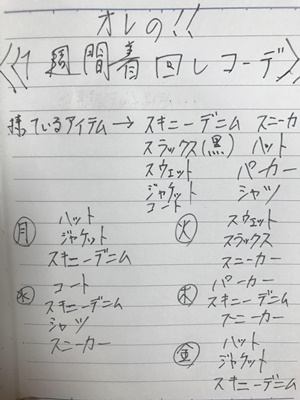 オレの!!
《1週間着回しコーデ》
持っているアイテム → スキニーデニム スニーカ
スラックス(黒) ハット
スウェット パーカー
ジャケット シャツ
コート
月 ハット
ジャケット
スキニーデニム
火 スウェット
スラックス
スニーカー
水 コート
スキニーデニム
シャツ
スニーカー
木 パーカー
スキニーデニム
スニーカー
金 ハット
ジャケット
スキニーデニム